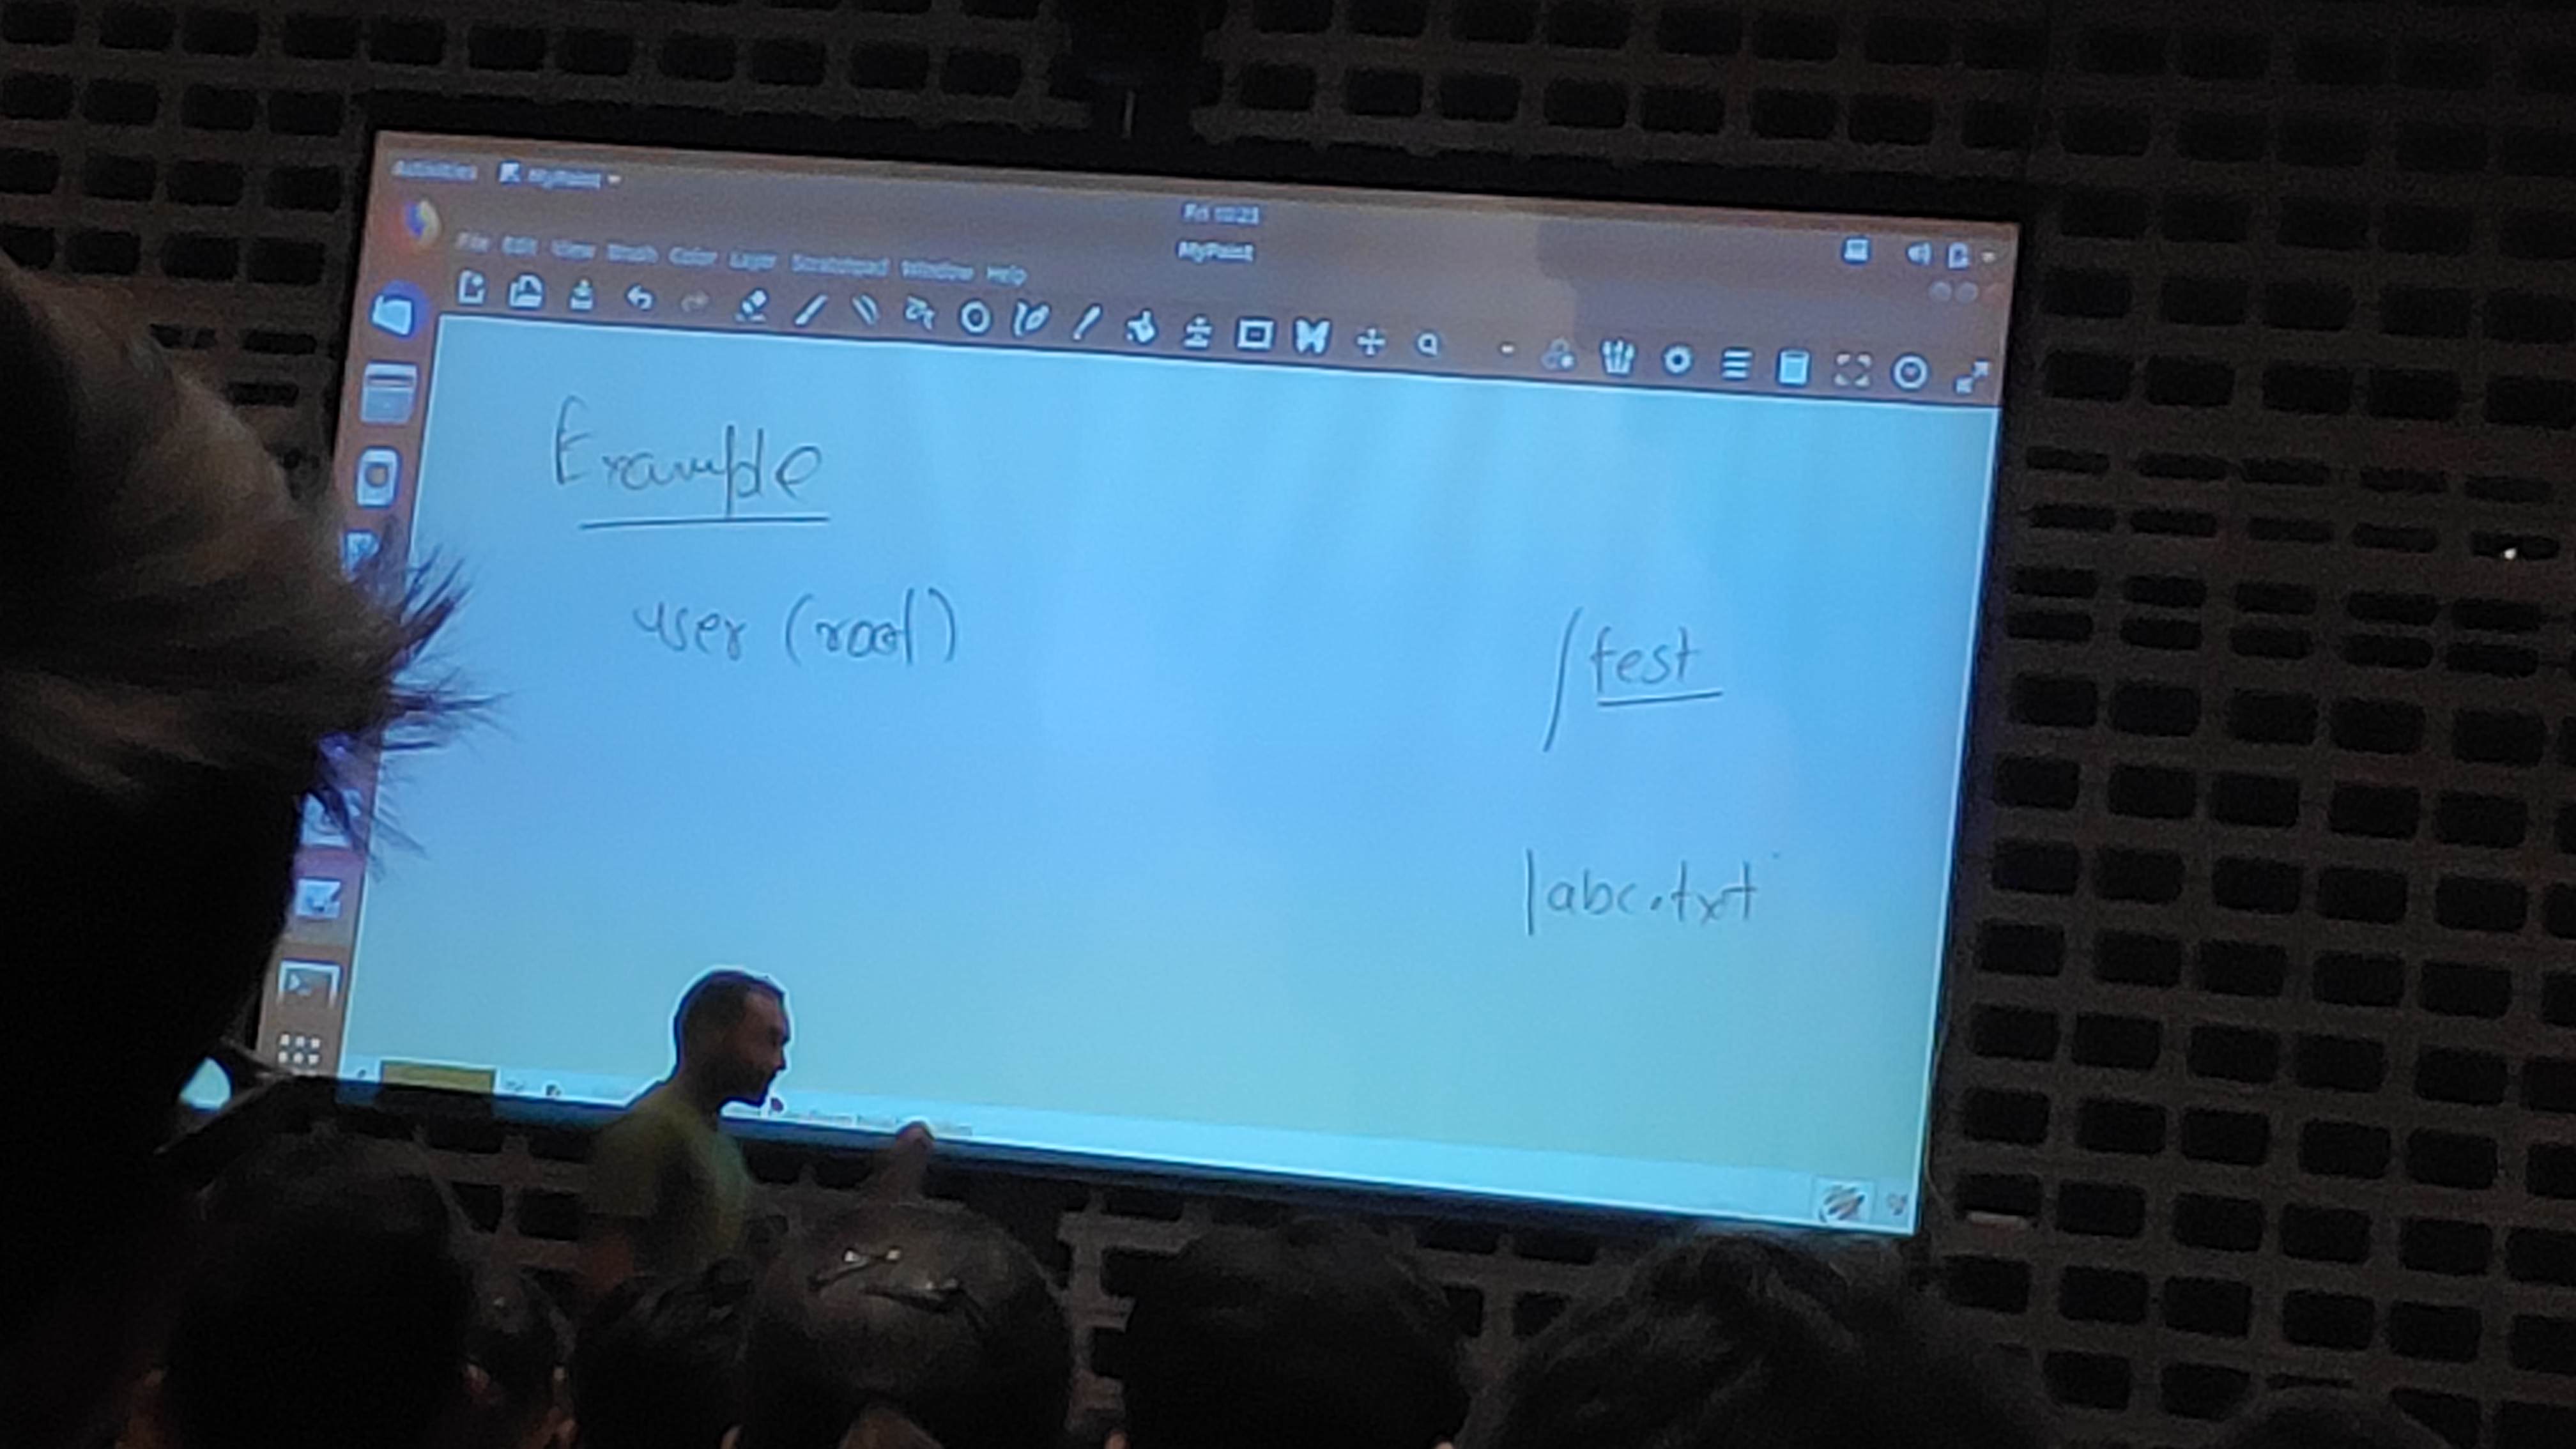 Activities MyPaint
Fri 10:23
MyPaint
File Edit View Brush Color Layer Scratchpad Window Help
Example
user (root)
/test
/abc.txt